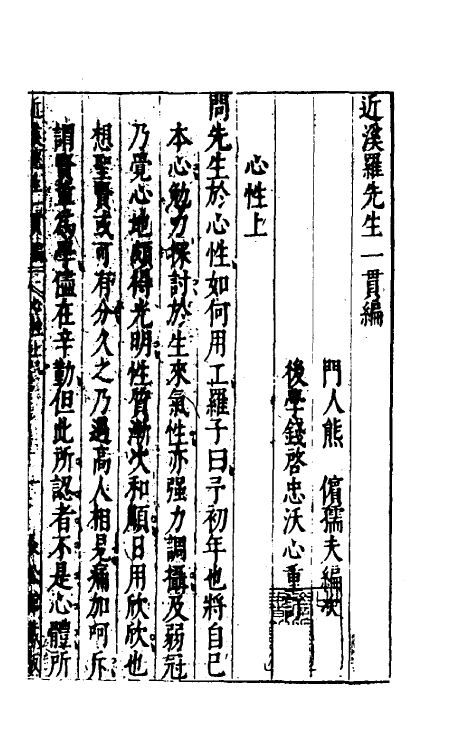 近溪羅先生一貫編
門人熊儐孺夫編次
後學錢啓忠沃心重訂
心性上
問先生於心性如何用工羅子曰予初年也將自己
本心勉力探討於生來氣性亦强力調攝及弱冠
乃覺心地頗得光明性質漸次和順日用欣欣也
想聖賢或可有分久之乃遇高人相見痛加呵斥
謂賢輩為學儘在辛勤但此所認者不是心體所